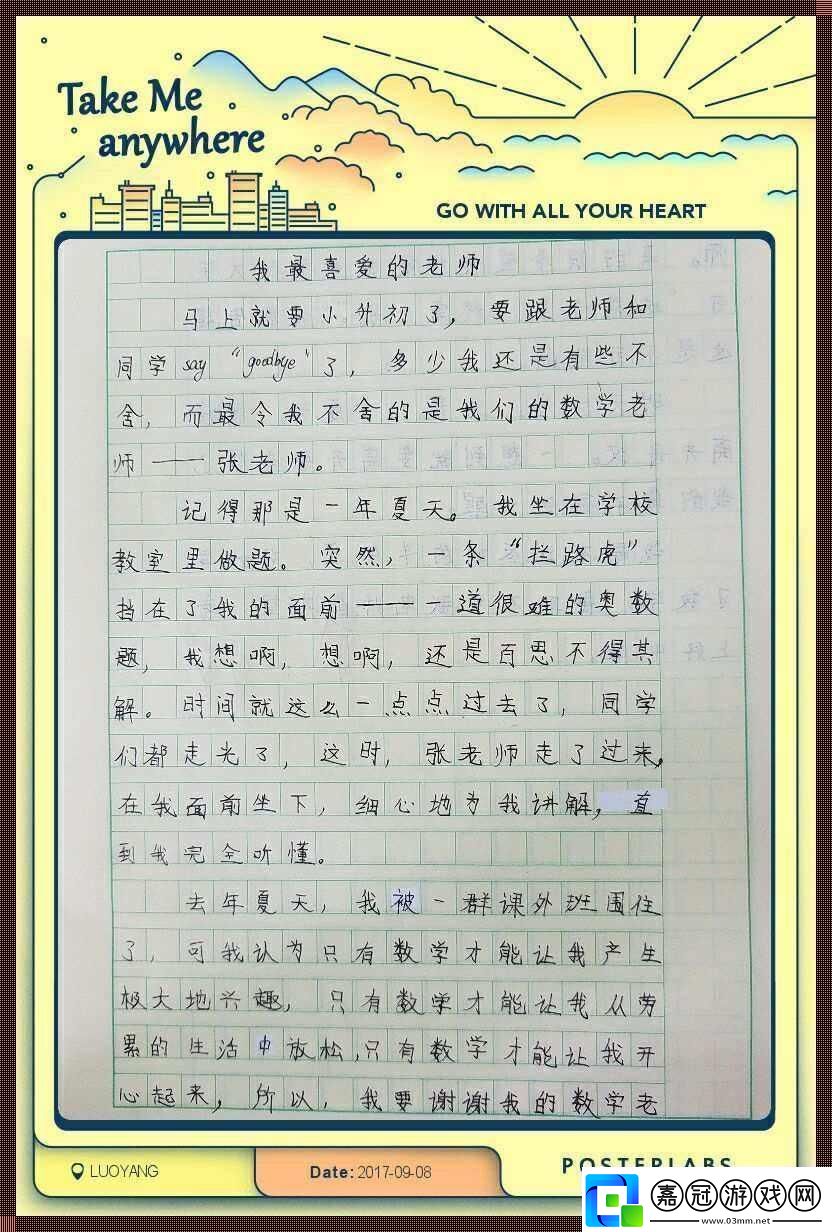 Take Me
anywhere
GO WITH ALL YOUR HEART
我最喜爱的老师
马上就要小升初了，要跟老师和
同学say“goodbye”了，多少我还是有些不
舍，而最令我不舍的是我们的数学老
师——张老师。
记得那是一年夏天。我坐在学校
教室里做题。突然，一条“拦路虎”
挡在了我的面前———一道很难的奥数
题，我想啊，想啊，还是百思不得其
解。时间就这么一点点过去了，同学
们都走光了，这时，张老师走了过来，
在我面前坐下，细心地为我讲解，直
到我完全听懂。
去年夏天，我被一群课外班围住
了，可我认为只有数学才能让我产生
极大地兴趣，只有数学才能让我从劳
累的生活中放松，只有数学才能让我开
心起来，所以，我要谢谢我的数学老
LUOYANG
Date: 2017-09-08
POSTERLABS
嘉冠游戏网
www.03mm.net